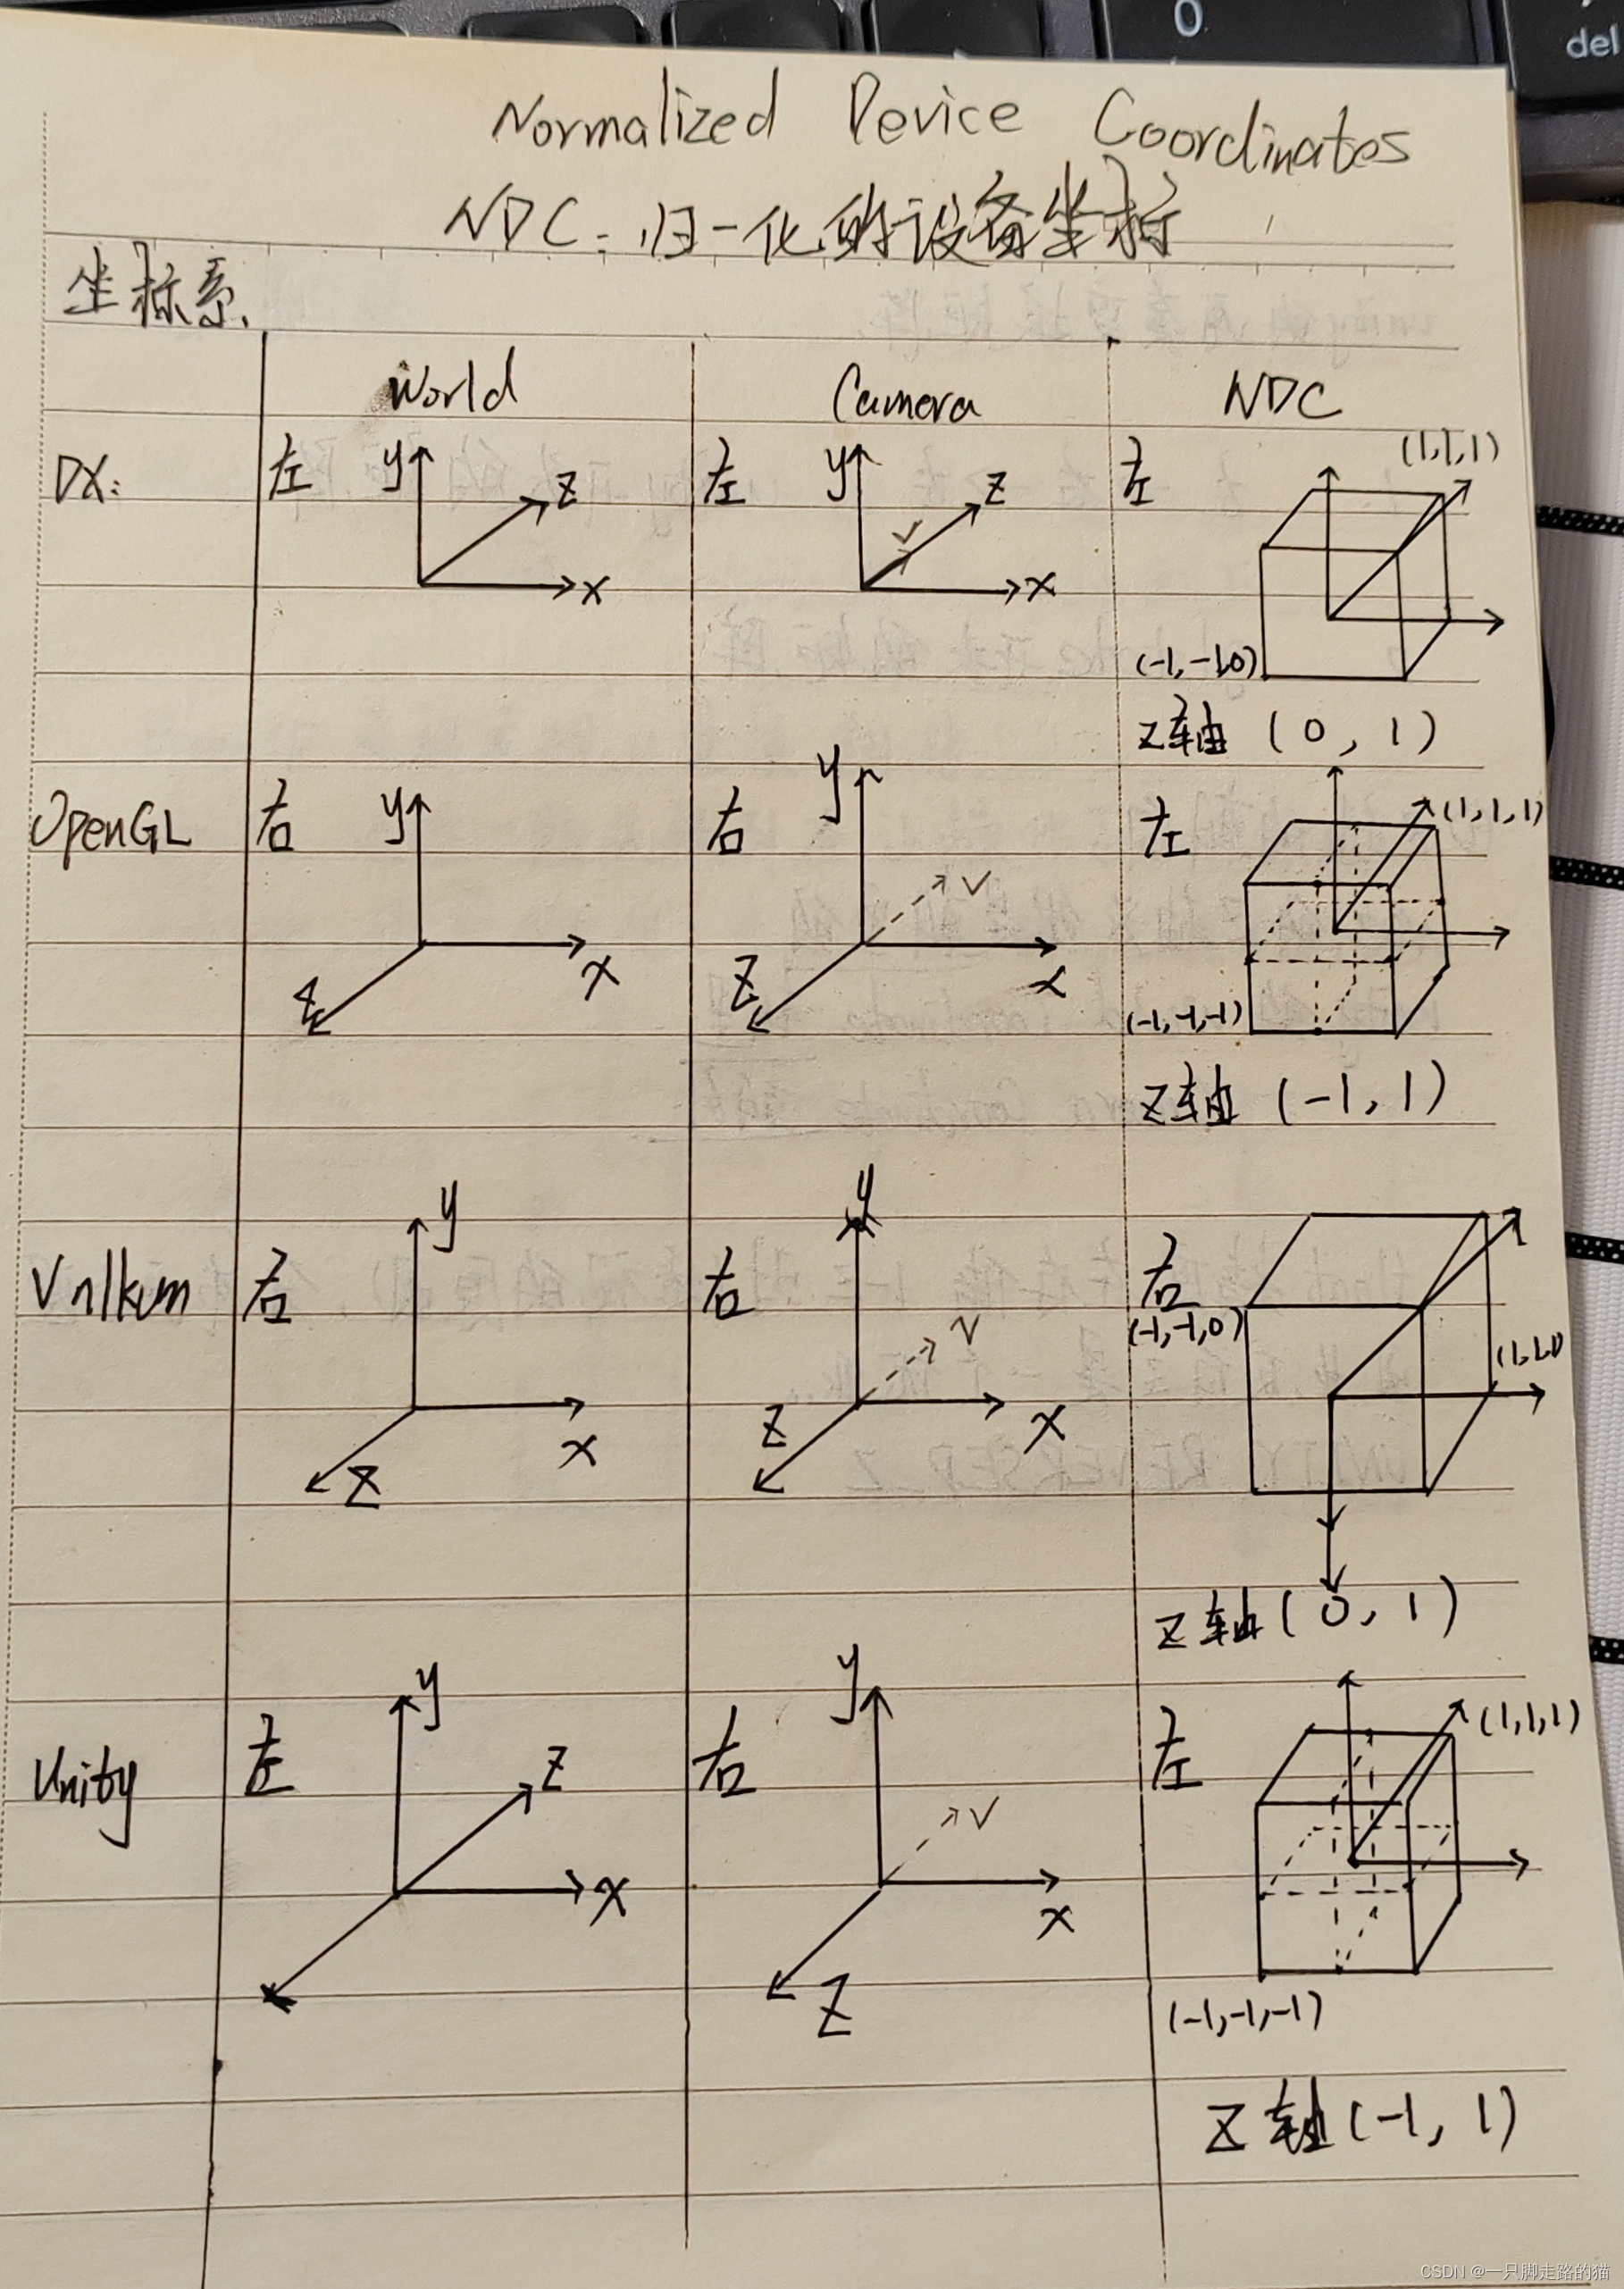 0
del
Normalized Device Coordinates
NDC: 归一化的设备坐标
坐标系.
World Camera NDC
DX: 左 y z x 左 y z v x 左 (1,1,1) (-1,-1,0)
z轴 (0, 1)
OpenGL 右 y x z 右 y v x z 左 (1,1,1) (-1,-1,-1)
z轴 (-1, 1)
Vnlkum 右 y x z 右 y v x z 右 (-1,-1,0) (1,1,1)
z轴 (0, 1)
Unity 左 y z x 右 y v x z 左 (1,1,1) (-1,-1,-1)
z轴 (-1, 1)
CSDN @一只脚走路的猫